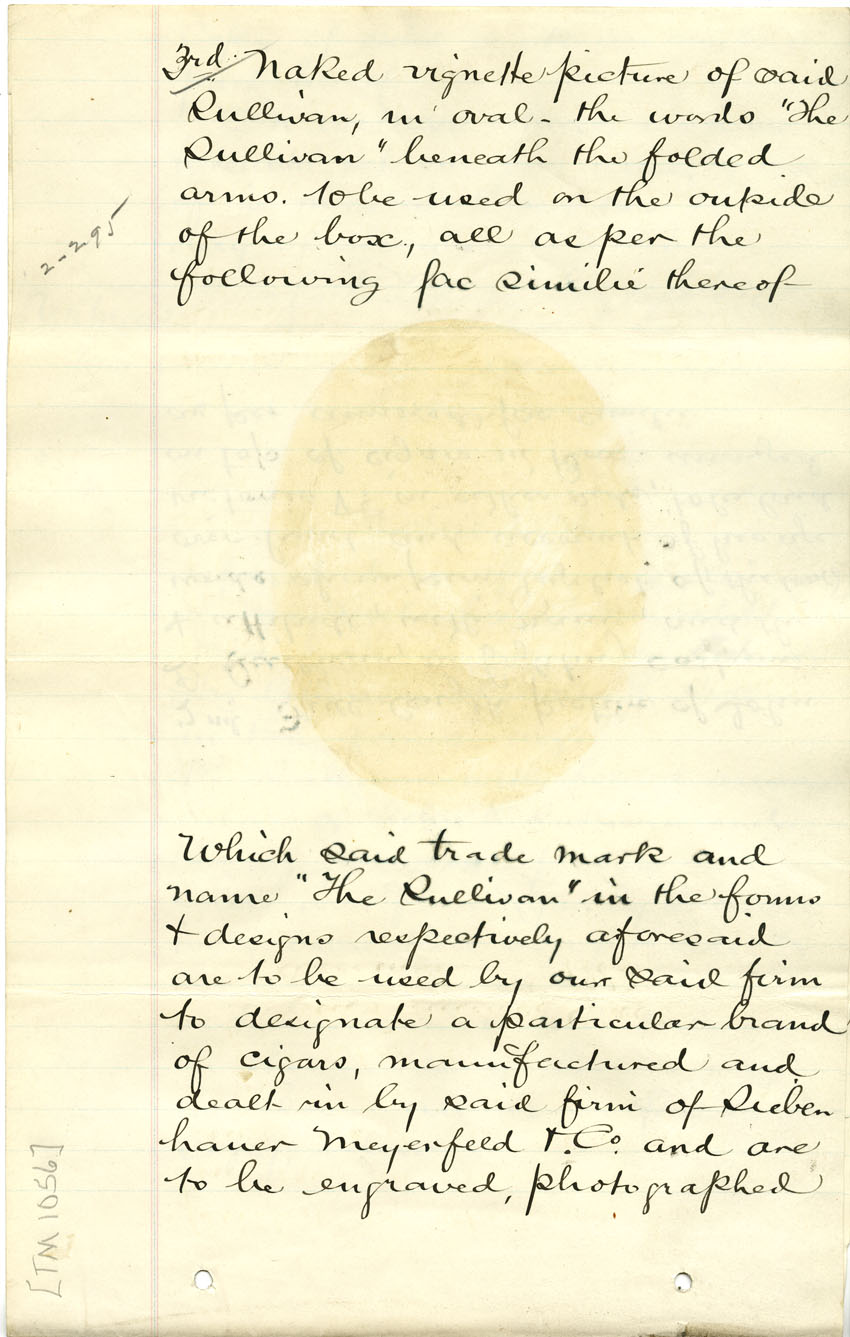 3rd. Naked vignette picture of said
Sullivan, in oval - the words "The
Sullivan" beneath the folded
arms. to be used on the outside
of the box, all as per the
following fac similié thereof
2-295
Which said trade mark and
name "The Sullivan" in the forms
+ designs respectively aforesaid
are to be used by our said firm
to designate a particular brand
of cigars, manufactured and
dealt in by said firm of Sieben
hauer Meyerfeld & Co. and are
to be engraved, photographed
[TM 1056]